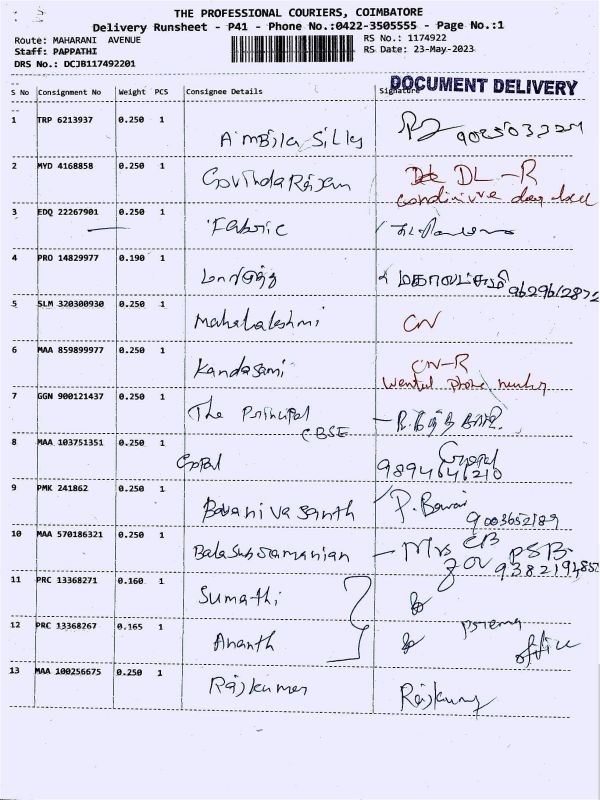 THE PROFESSIONAL COURIERS, COIMBATORE
Delivery Runsheet - P41 - Phone No.:0422-3505555 - Page No.:1
Route: MAHARANI AVENUE RS No.: 1174922
Staff: PAPPATHI RS Date: 23-May-2023
DRS No.: DCJB117492201
DOCUMENT DELIVERY
S No Consignment No Weight PCS Consignee Details Signature
1 TRP 6213937 0.250 1 Ambika Silks
2 MYD 4168858 0.250 1 GovindaRajan DL-R
3 EDQ 22267901 0.250 1 Fabric
4 PRO 14829977 0.190 1 மகாலட்சுமி 9629612872
5 SLM 320300930 0.250 1 Mahalakshmi CN
6 MAA 859899977 0.250 1 Kandasami CN-R
phone number
7 GGN 900121437 0.250 1 The Principal
CBSE
8 MAA 103751351 0.250 1 Gopal Gopal
9894646210
9 PMK 241862 0.250 1 Bavanivasanth P. Bavani
9003652189
10 MAA 570186321 0.250 1 Balasubramanian - Mrs CB PSB
11 PRC 13368271 0.160 1 Sumathi
12 PRC 13368267 0.165 1 Ananth office
13 MAA 100256675 0.250 1 Rajkumar Rajkumar